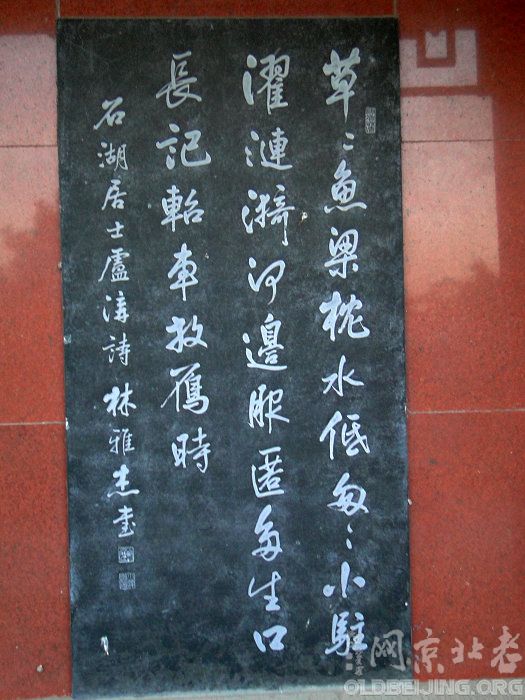 草〻魚梁枕水低匆〻小駐
濯漣漪河邊服匿多生口
長記軺車放鴈時
石湖居士盧溝詩 林雅杰書
网京北老
OLDBEIJING.ORG